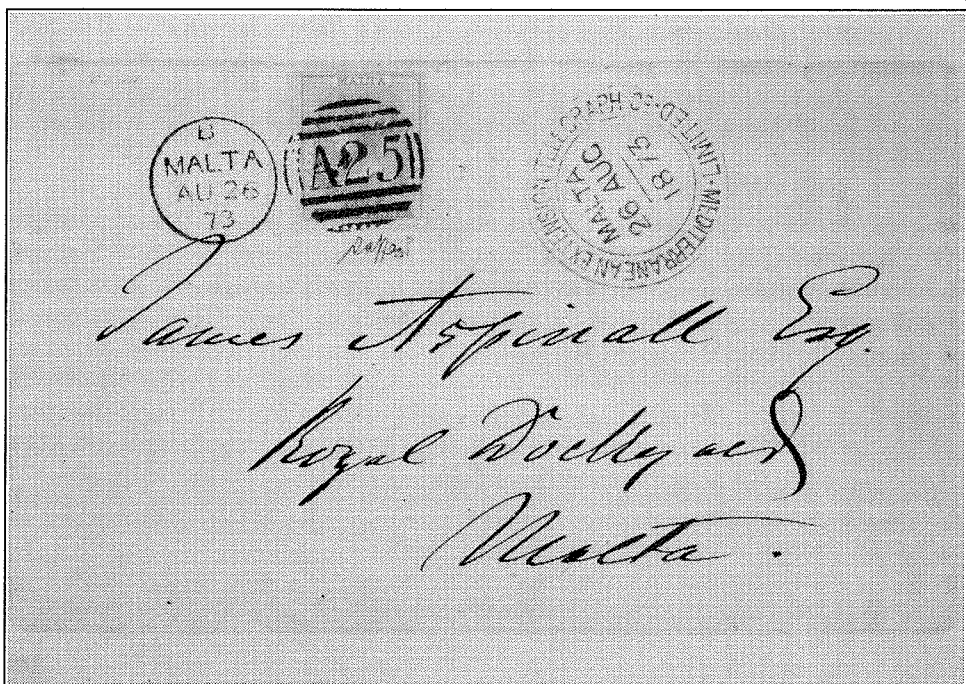 B
MALTA
AU 26
73
MALTA
A25
MEDITERRANEAN EXTENSION TELEGRAPH CO. LIMITED·LIMITED·
MALTA
26 AUG
1873
James Aspinall Esq.
Royal Dockyard
Malta.